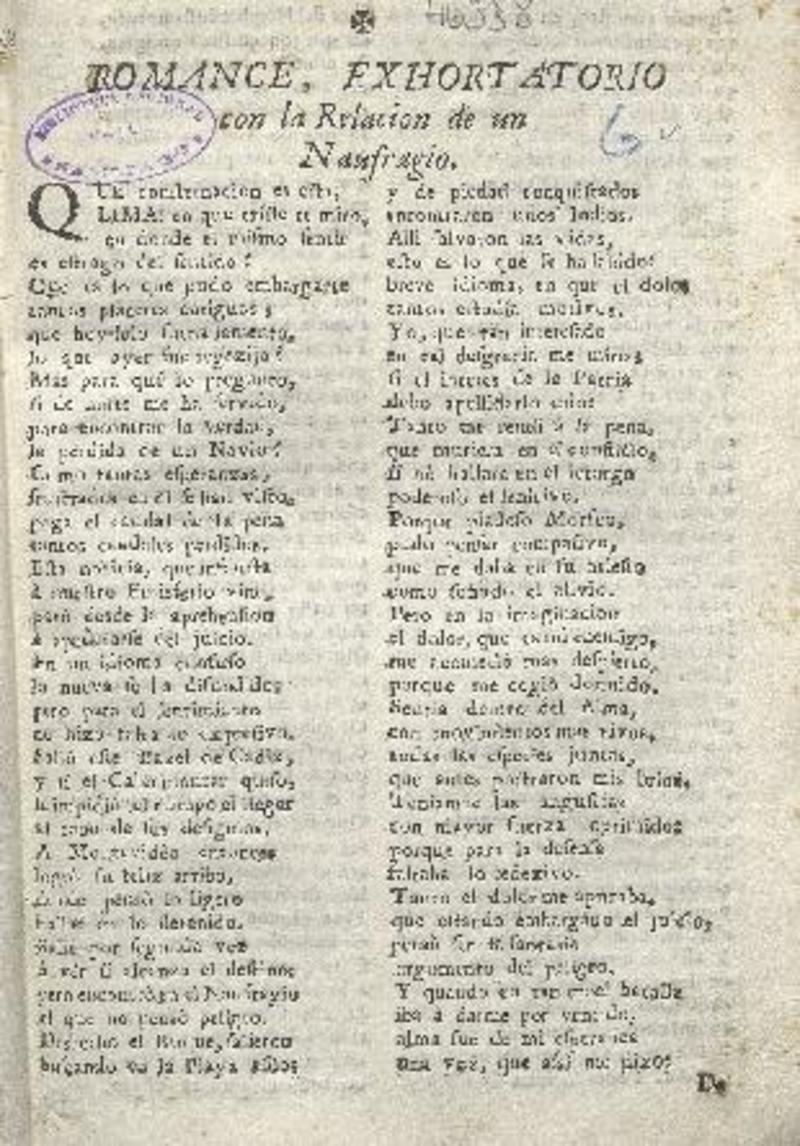 ROMANCE, EXHORTATORIO
con la Relacion de un
Naufragio.
QUE consternacion es esta,
LIMA! en que triste te miro,
en donde el mismo sentir
es estrago del sentido?
Que es lo que pudo embargarte
tantos placeres antiguos;
que hoy solo lamento,
lo que ayer fue regozijo?
Mas para qué lo pregunto,
si de norte me ha servido,
para encontrar la verdad,
la perdida de un Navio?
Como tantas esperanzas,
frustradas en él se han visto,
paga el caudal de la pena
tantos caudales perdidos.
Esta noticia, que
á nuestro Emisferio vino,
pasó desde la aprehension
á apoderarse del juicio.
En un idioma confuso
la nueva se ha difundido;
pero para el sentimiento
no hizo falta lo expresivo.
Salió este Baxel de Cadiz,
y si el Callao quiso,
le impidió el tiempo el llegar
al cabo de sus designios.
A Montevideo entonces
logró su feliz arribo,
donde pensó lo ligero
hallar en lo detenido.
Sale por segunda vez
á vér si alcanza el destino;
pero encontró en el Naufragio
el que no pensó peligro.
Deshecho el Buque, salieron
buscando en la Playa asilos
y de piedad conquistados
encontraron unos Indios.
Alli salvaron las vidas,
esto es lo que se ha sabido:
breve idioma, en que el dolor
tantos estudia motivos.
Yo, que tan interesado
en tal desgracia me miro;
si el interes de la Patria
debo apellidarlo mio:
Tanto me rendí á la pena,
que muriera en el conflicto,
si no hallara en el letargo
poderoso el lenitivo.
Porque piadoso Morfeo,
pudo pensar compasivo,
que me daba en su
como soñado el alivio.
Pero en la imaginacion
el dolor, que enemigo,
me acometió mas despierto,
porque me cogió dormido.
Sentia dentro del Alma,
con movimientos mas vivos,
todas las especies juntas,
que antes postraron mis brios.
Teniame las angustias
con mayor fuerza oprimido;
porque para la defensa
faltaba lo reflexivo.
Tanto el dolor me apuraba,
que estando embargado el juicio,
pensó ser la fantasia
argumento del peligro.
Y quando en tan cruel batalla
iba á darme por vencido,
alma fue de mi esperanza
una voz, que asi me dixo:
De